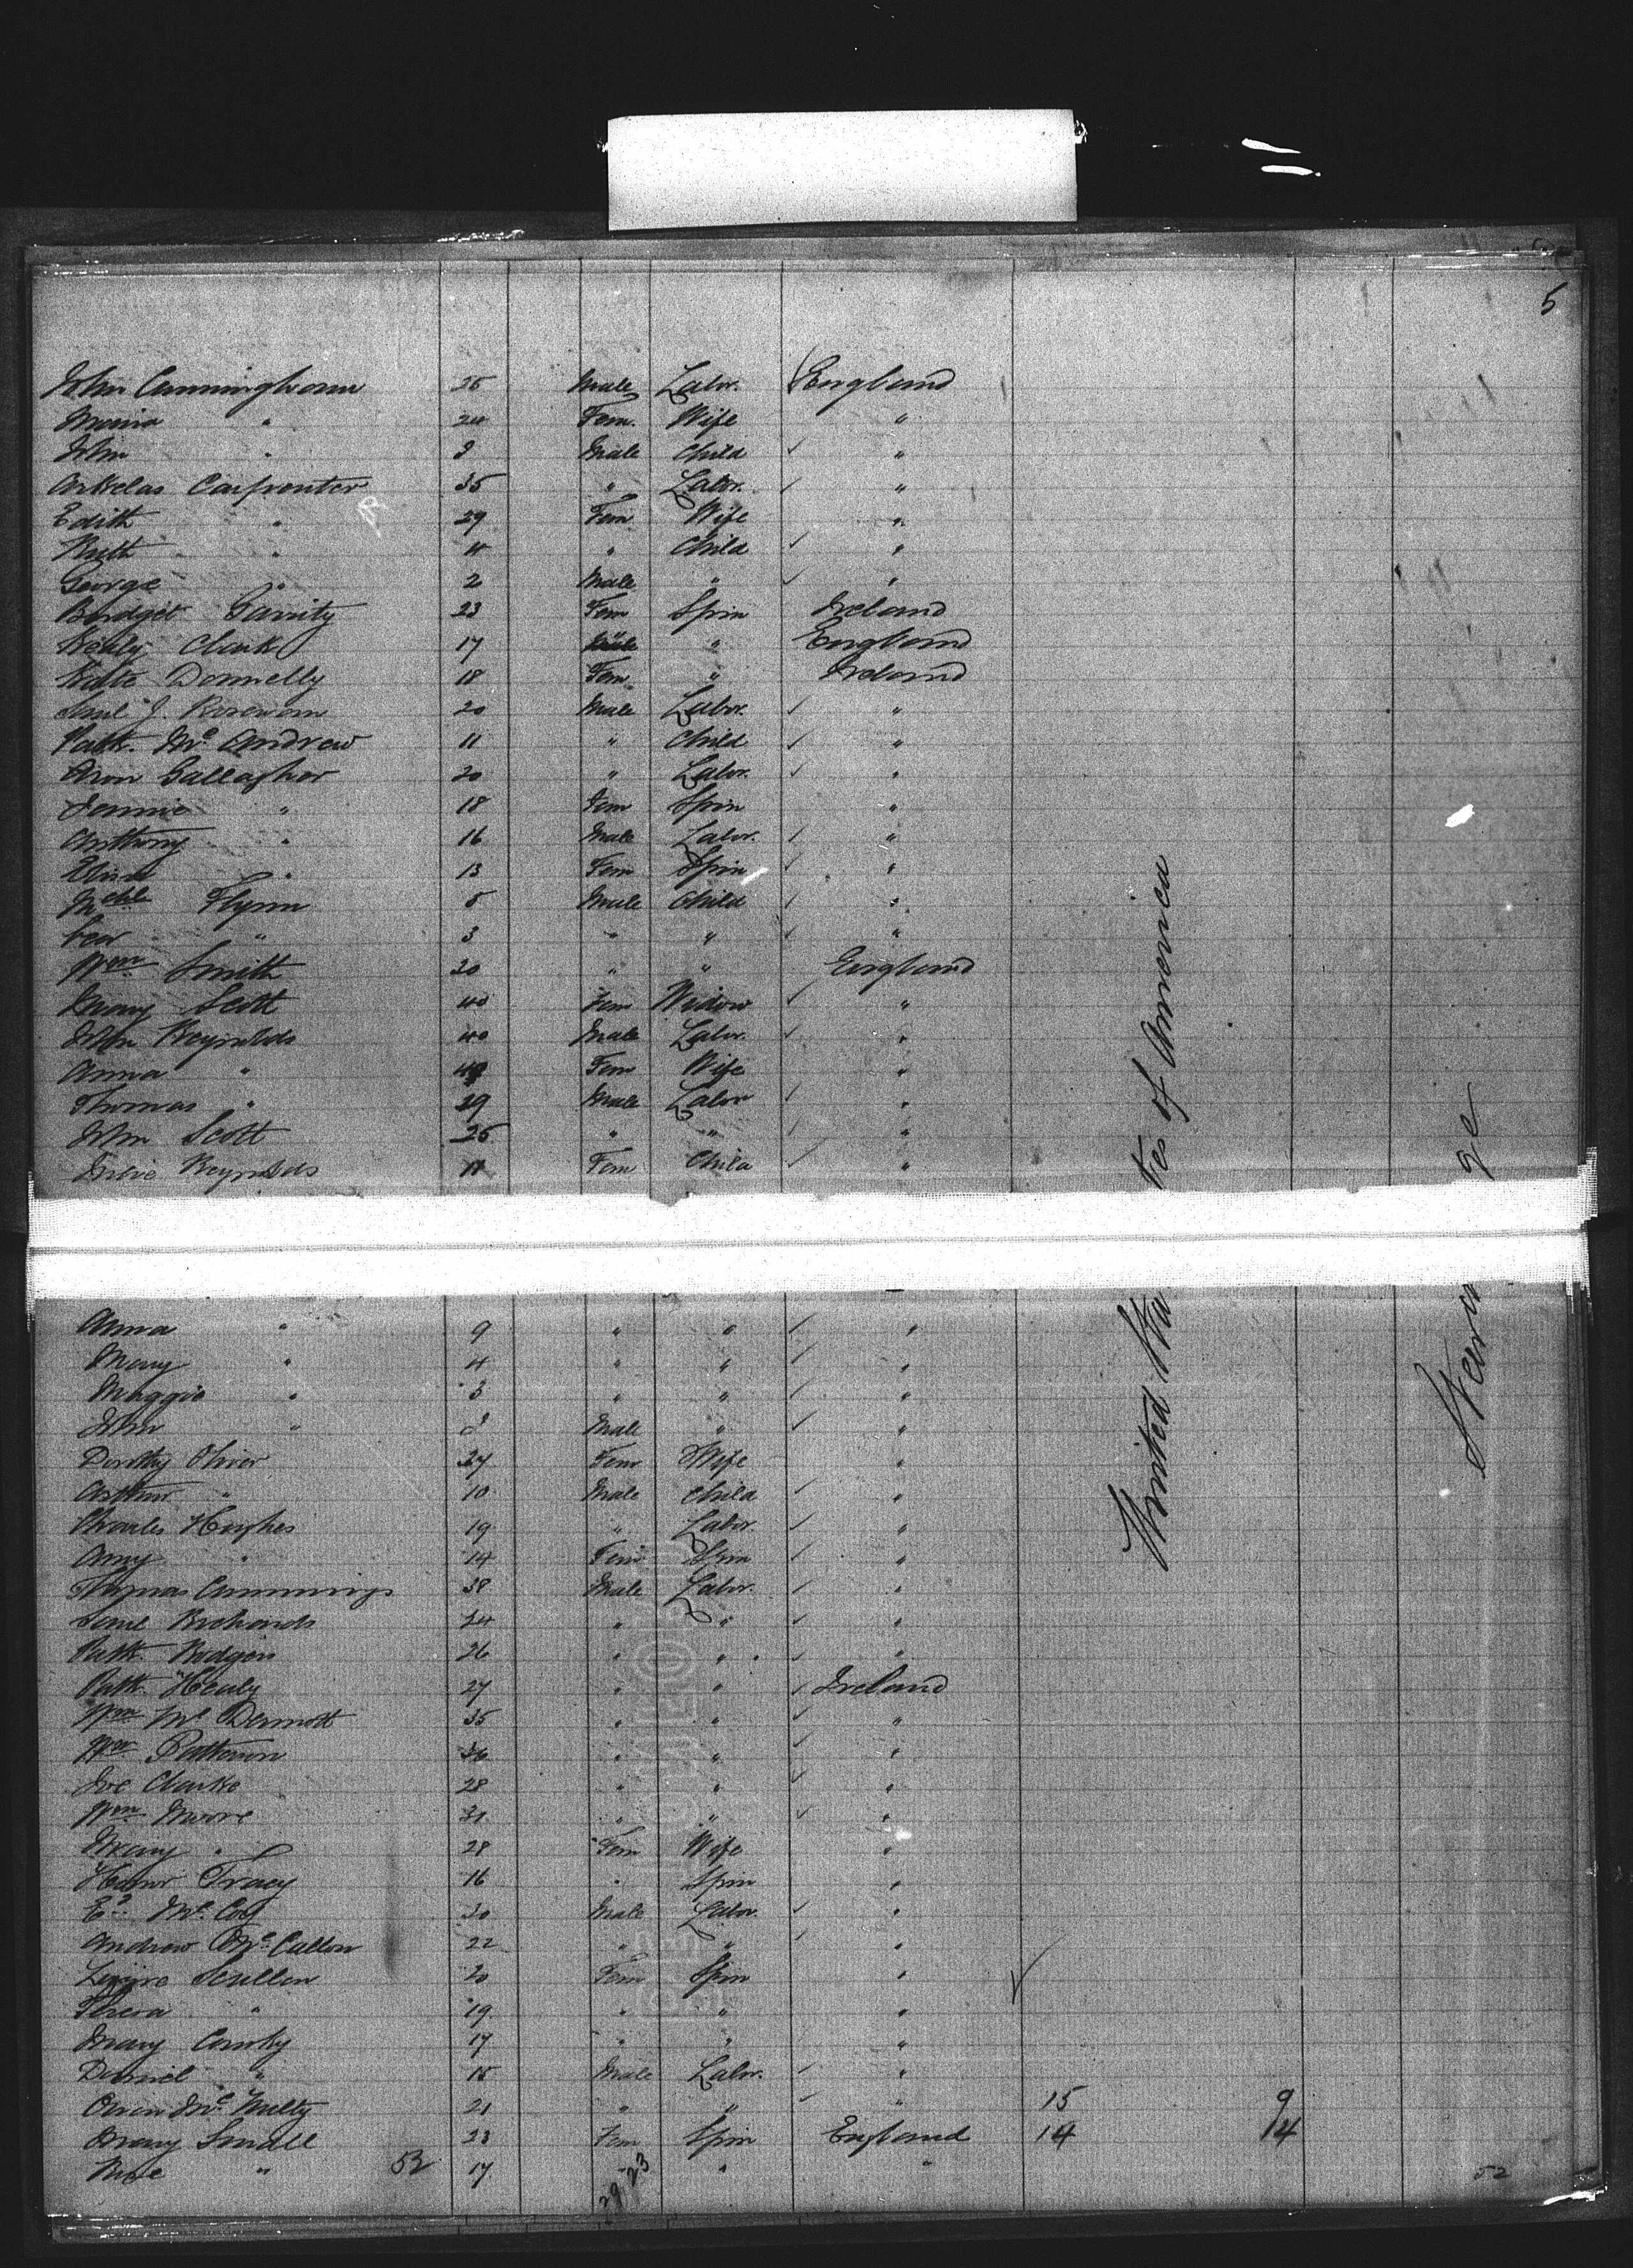 5
John Cunningham 25 Male Labr. England
Maria " 24 Fem. Wife "
John " Male Child "
Arkelas Carpenter 35 " Labr. "
Edith " 29 Fem Wife "
Ruth " 4 " Child "
George " 2 Male " "
Bridget Garrity 23 Fem Spin Ireland
Clark 17 " England
Kate Donnelly 18 Fem " Ireland
Saml J. 20 Male Labr. "
Patk. Mc Andrew 11 " Child "
Gallagher 20 " Labr. "
Jennie " 18 Fem Spin "
Anthony " 16 Male Labr. "
Eliza " 13 Fem Spin "
Mchl Flynn 5 Male Child "
" 3 " " "
Wm Smith 20 " " England
Mary Scott 40 Fem Widow "
John Reynolds 40 Male Labr. "
Anna " Fem Wife "
Thomas " 29 Male Labor "
John Scott 25 " " "
Reynolds 11 Fem Child "
Anna " 9 " " "
Mary " 4 " " "
Maggie " 3 " " "
John " Male " "
Dorothy Oliver 27 Fem Wife "
Arthur " 10 Male Child "
Charles Hughes 19 " Labr. "
Amy " 14 Fem Spin "
Thomas Cummings 38 Male Labr. "
Saml Richards 24 " " "
Patk. Rodgers 26 " " "
Patk. Healy 27 " " Ireland
Wm Mc Dermott 35 " " "
Wm Patterson 36 " " "
Joe Clarke 28 " " "
Wm Moore 31 " " "
Mary " 28 Fem Wife "
Honor Tracy 16 " Spin "
Ed Mc Coy 30 Male Labor. "
Andrew Mc Callon 22 " " "
Scullon 20 Fem Spin "
" 19 " " "
Mary 17 " " "
Daniel " 15 Male Labr. "
Owen Mc Nulty 21 " " " 15 9
Mary Small 23 Fem Spin England 14 14
" 52 17 " " "
29 23
52
United Sta
tes of America
ge